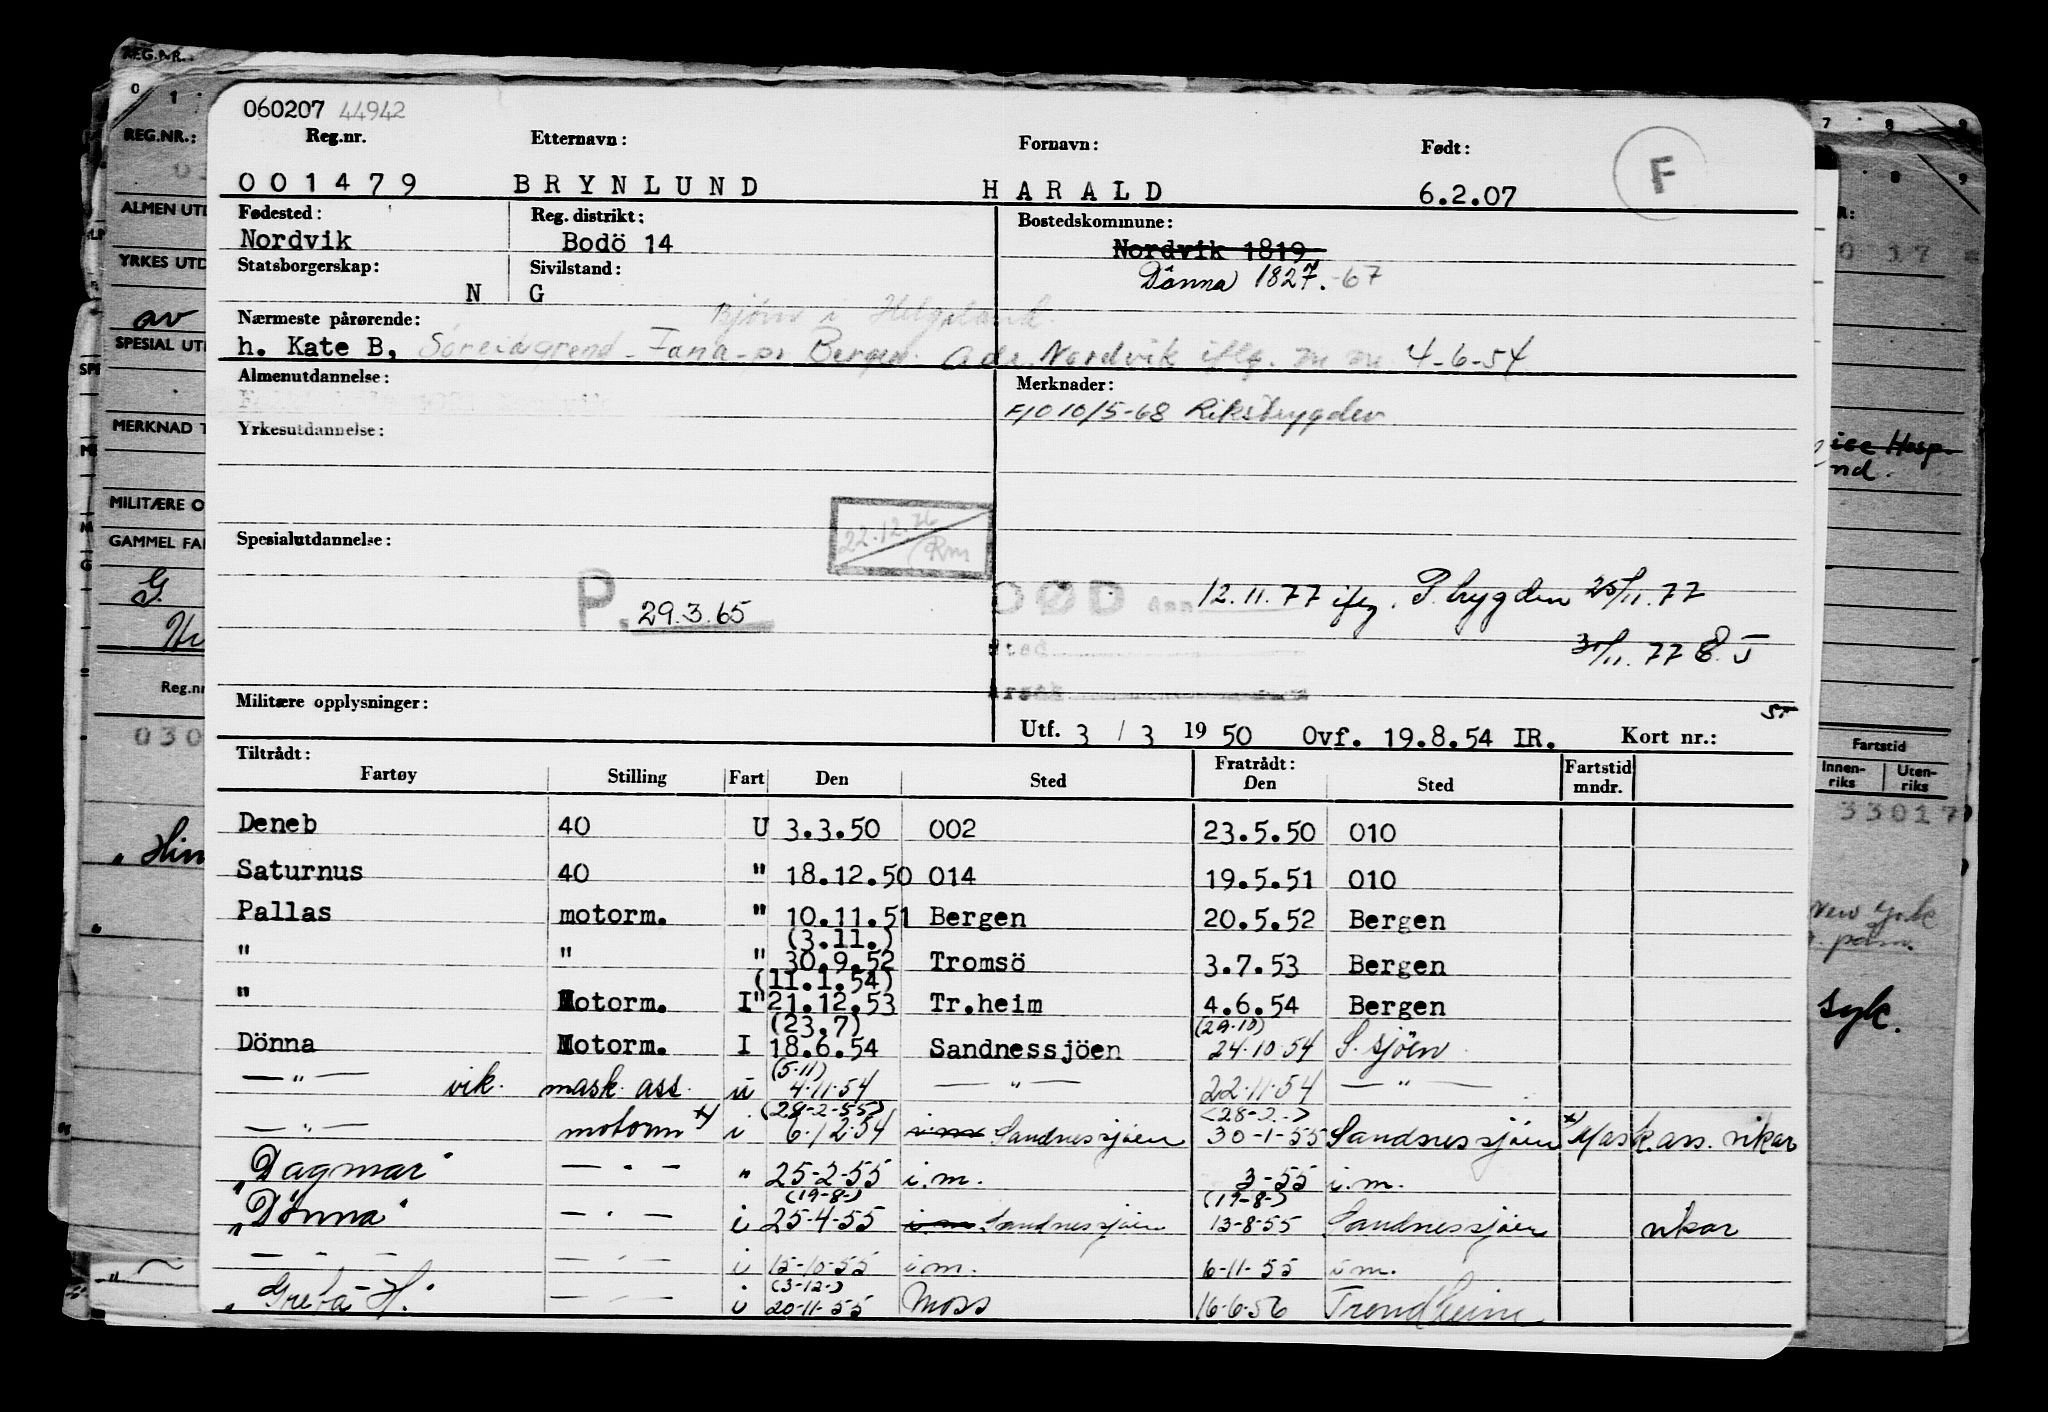 060207 44942
Reg.nr. Etternavn: Fornavn: Født: F
001479 BRYNLUND HARALD 6.2.07
Fødested: Reg. distrikt: Bostedskommune:
Nordvik Bodö 14 Nordvik 1819
Statsborgerskap: Sivilstand: Dønna 1827.-67
N G
Nærmeste pårørende: Bjørn i Helgeland.
h. Kate B, Søreidgrend - Fana - pr Bergen. Adr. Nordvik iflg. m m 4-6-54
Almenutdannelse: Merknader:
F/O 10/5-68 Rikstrygden
Yrkesutdannelse:
22.12.76
Rm
Spesialutdannelse:
P. 29.3.65 DØD ann. 12.11.77 ifg. P.trygden 25/11.77
Sted
31/11.77
Årsak
Militære opplysninger:
Utf. 3 / 3 1950 Ovf. 19.8.54 IR. Kort nr.:
Tiltrådt: Fratrådt: Fartstid
Fartøy Stilling Fart Den Sted Den Sted mndr.
Deneb 40 U 3.3.50 002 23.5.50 010
Saturnus 40 " 18.12.50 014 19.5.51 010
Pallas motorm. " 10.11.51 Bergen 20.5.52 Bergen
(3.11.)
" " " 30.9.52 Tromsö 3.7.53 Bergen
(11.1.54)
" Motorm. I" 21.12.53 Tr.heim 4.6.54 Bergen
(23.7) (29.10)
Dönna Motorm. I 18.6.54 Sandnessjöen 24.10.54 S.sjöen
(5.11)
— " — vik. mask. ass. u 4.11.54 — " — 22.11.54 — " —
(28-2-55) (28-2-)
— " — motorm x) i 6.12.54 i.m. Sandnessjøen 30-1-55 Sandnessjøen x) Mask.ass. vikar
"Dagmar" — " — " 25-2-55 i.m. 3-55 i.m.
(19-8-) (19-8-)
"Dønna" — " — i 25-4-55 i.m. Sandnessjøen 13-8-55 Sandnessjøen vikar
— " — — " — i 15-10-55 i.m. 6-11-55 i m.
(3-12-)
"Greta H." — " — i 20-11-55 Moss 16-6-56 Trondheim
REG.NR.:
0 1
REG.NR.:
ALMEN UTD
YRKES UTD
av
SPESIAL UTD
MERKNAD T
MILITÆRE O
GAMMEL FAR
G.
Reg.nr
030
7 8 9
8 9
017
Hosp.
nd.
Fartstid
Innen-riks Uten-riks
33017
New York
syk.